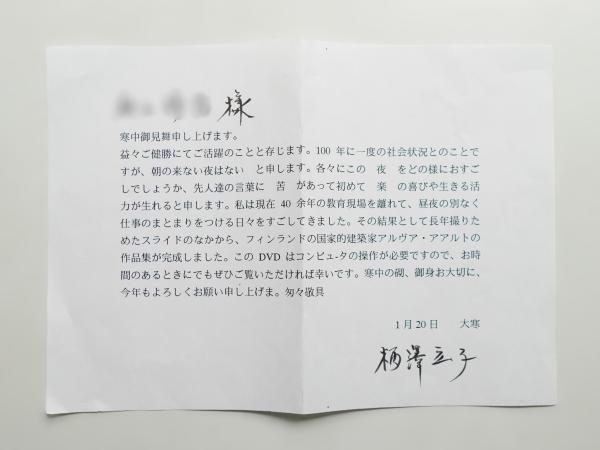 様
寒中御見舞申し上げます。
益々ご健勝にてご活躍のことと存じます。100 年に一度の社会状況とのことで
すが、朝の来ない夜はない　と申します。各々にこの　夜　をどの様におすご
しでしょうか、先人達の言葉に　苦　があって初めて　楽　の喜びや生きる活
力が生れると申します。私は現在 40 余年の教育現場を離れて、昼夜の別なく
仕事のまとまりをつける日々をすごしてきました。その結果として長年撮りた
めたスライドのなかから、フィンランドの国家的建築家アルヴァ・アアルトの
作品集が完成しました。この DVD はコンピュ-タの操作が必要ですので、お時
間のあるときにでもぜひご覧いただければ幸いです。寒中の砌、御身お大切に、
今年もよろしくお願い申し上げま。匆々敬具
1 月 20 日　　大寒
柄澤立子